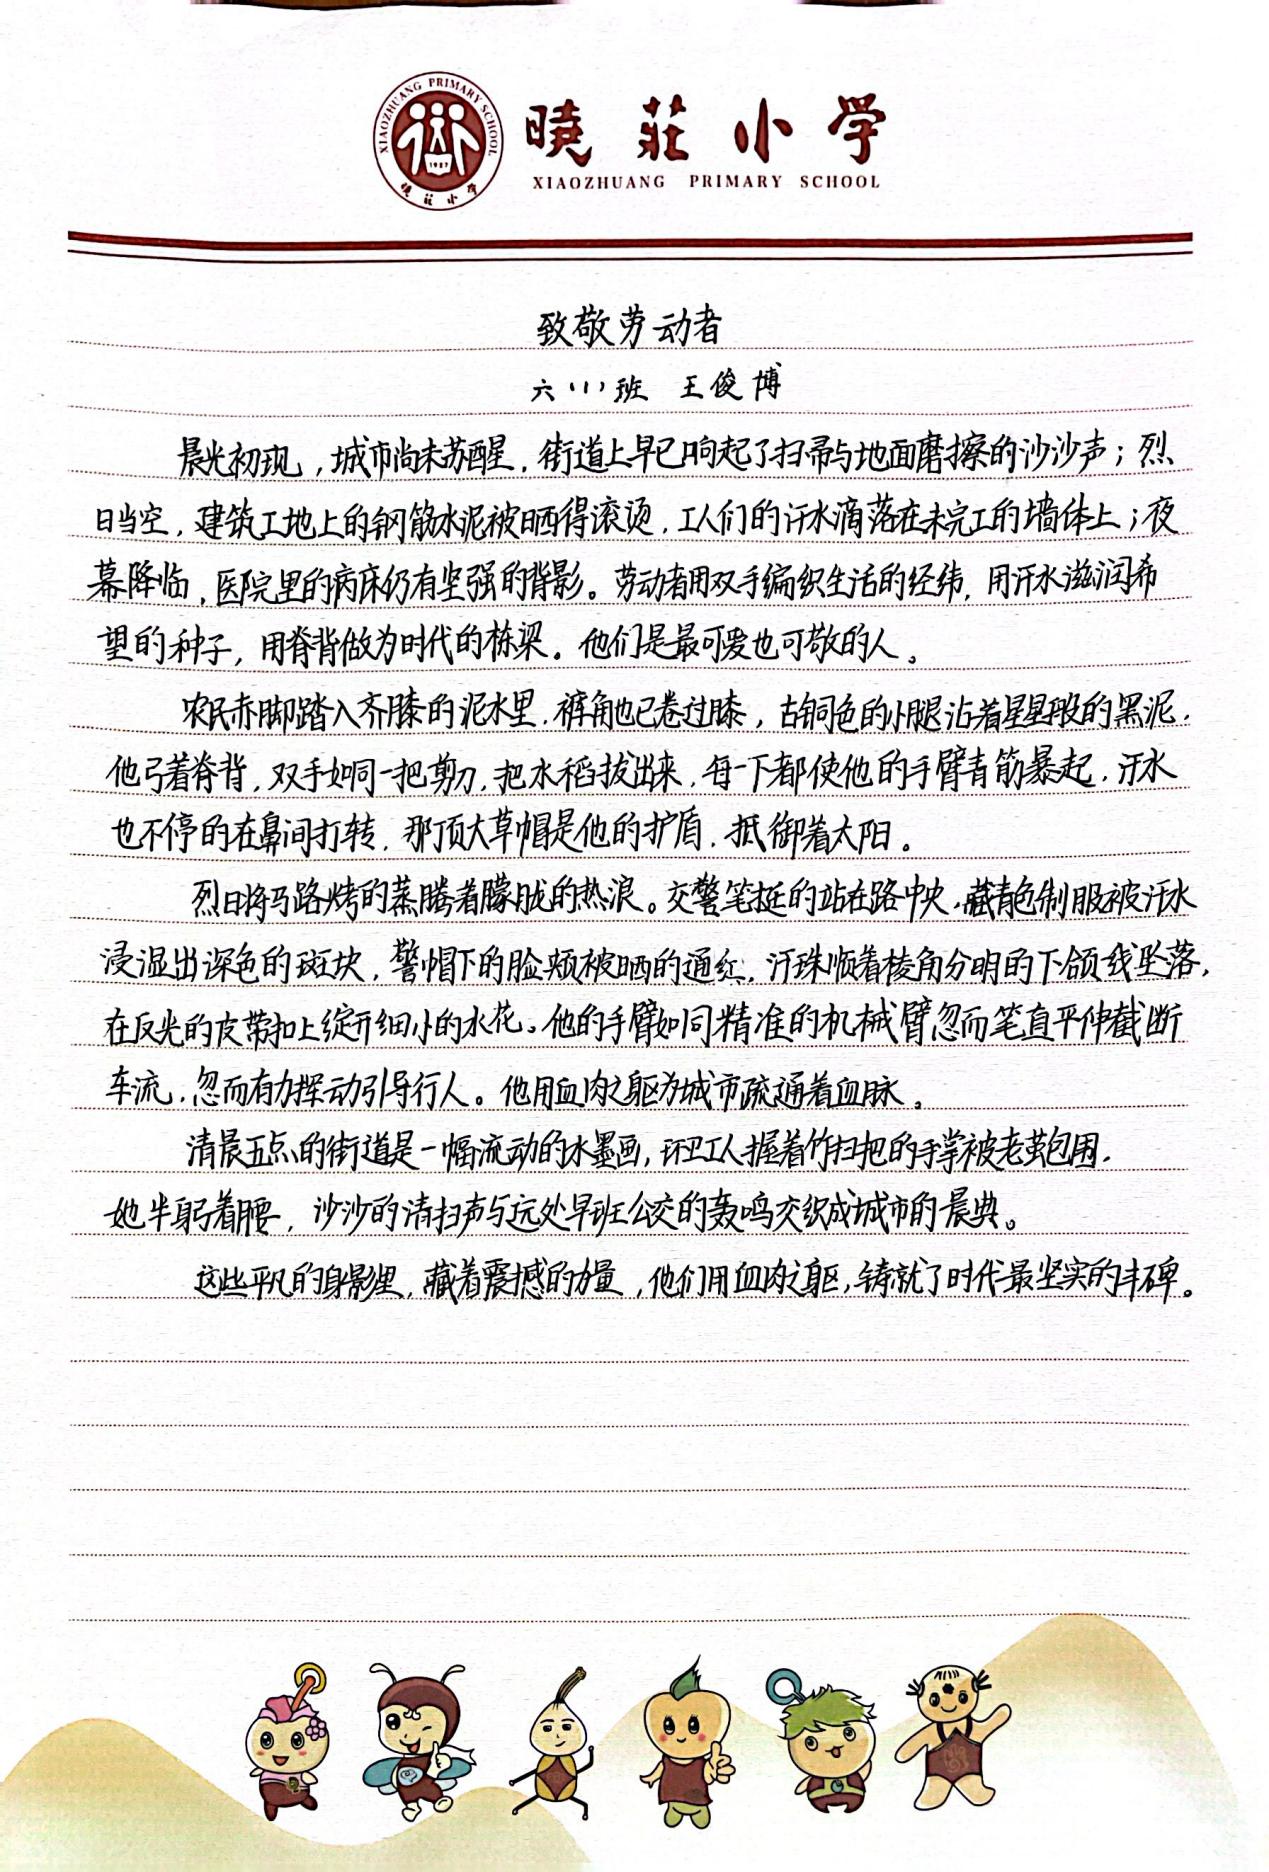 XIAOZHUANG PRIMARY SCHOOL
1927
曉莊小学
曉莊小学
XIAOZHUANG PRIMARY SCHOOL
致敬劳动者
六(1)班 王俊博
晨光初现,城市尚未苏醒,街道上早已响起了扫帚与地面磨擦的沙沙声;烈
日当空,建筑工地上的钢筋水泥被晒得滚烫,工人们的汗水滴落在未完工的墙体上;夜
幕降临,医院里的病床仍有坚强的背影。劳动者用双手编织生活的经纬,用汗水滋润希
望的种子,用脊背做为时代的栋梁。他们是最可爱也可敬的人。
农民赤脚踏入齐膝的泥水里,裤角也已卷过膝,古铜色的小腿沾着星星般的黑泥,
他弓着脊背,双手如同一把剪刀,把水稻拔出来,每一下都使他的手臂青筋暴起,汗水
也不停的在鼻间打转,那顶大草帽是他的护盾,抵御着太阳。
烈日将马路烤的蒸腾着朦胧的热浪。交警笔挺的站在路中央,藏青色制服被汗水
浸湿出深色的斑块,警帽下的脸颊被晒的通红,汗珠顺着棱角分明的下颌线坠落,
在反光的皮带扣上绽开细小的水花。他的手臂如同精准的机械臂忽而笔直平伸截断
车流,忽而有力挥动引导行人。他用血肉之躯为城市疏通着血脉。
清晨五点的街道是一幅流动的水墨画,环卫工人握着竹扫把的手掌被老茧包围,
她半躬着腰,沙沙的清扫声与远处早班公交的轰鸣交织成城市的晨典。
这些平凡的身影里,藏着震撼的力量,他们用血肉之躯,铸就了时代最坚实的丰碑。